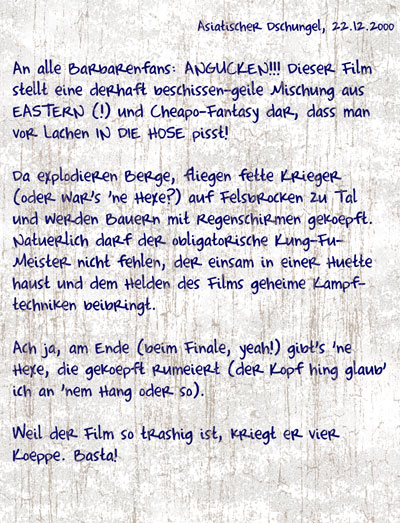 Asiatischer Dschungel, 22.12.2000
An alle Barbarenfans: ANGUCKEN!!! Dieser Film
stellt eine derhaft beschissen-geile Mischung aus
EASTERN (!) und Cheapo-Fantasy dar, dass man
vor Lachen IN DIE HOSE pisst!
Da explodieren Berge, fliegen fette Krieger
(oder war's 'ne Hexe?) auf Felsbrocken zu Tal
und werden Bauern mit Regenschirmen gekoepft.
Natuerlich darf der obligatorische Kung-Fu-
Meister nicht fehlen, der einsam in einer Huette
haust und dem Helden des Films geheime Kampf-
techniken beibringt.
Ach ja, am Ende (beim Finale, yeah!) gibt's 'ne
Hexe, die gekoepft rumeiert (der Kopf hing glaub'
ich an 'nem Hang oder so).
Weil der Film so trashig ist, kriegt er vier
Koeppe. Basta!